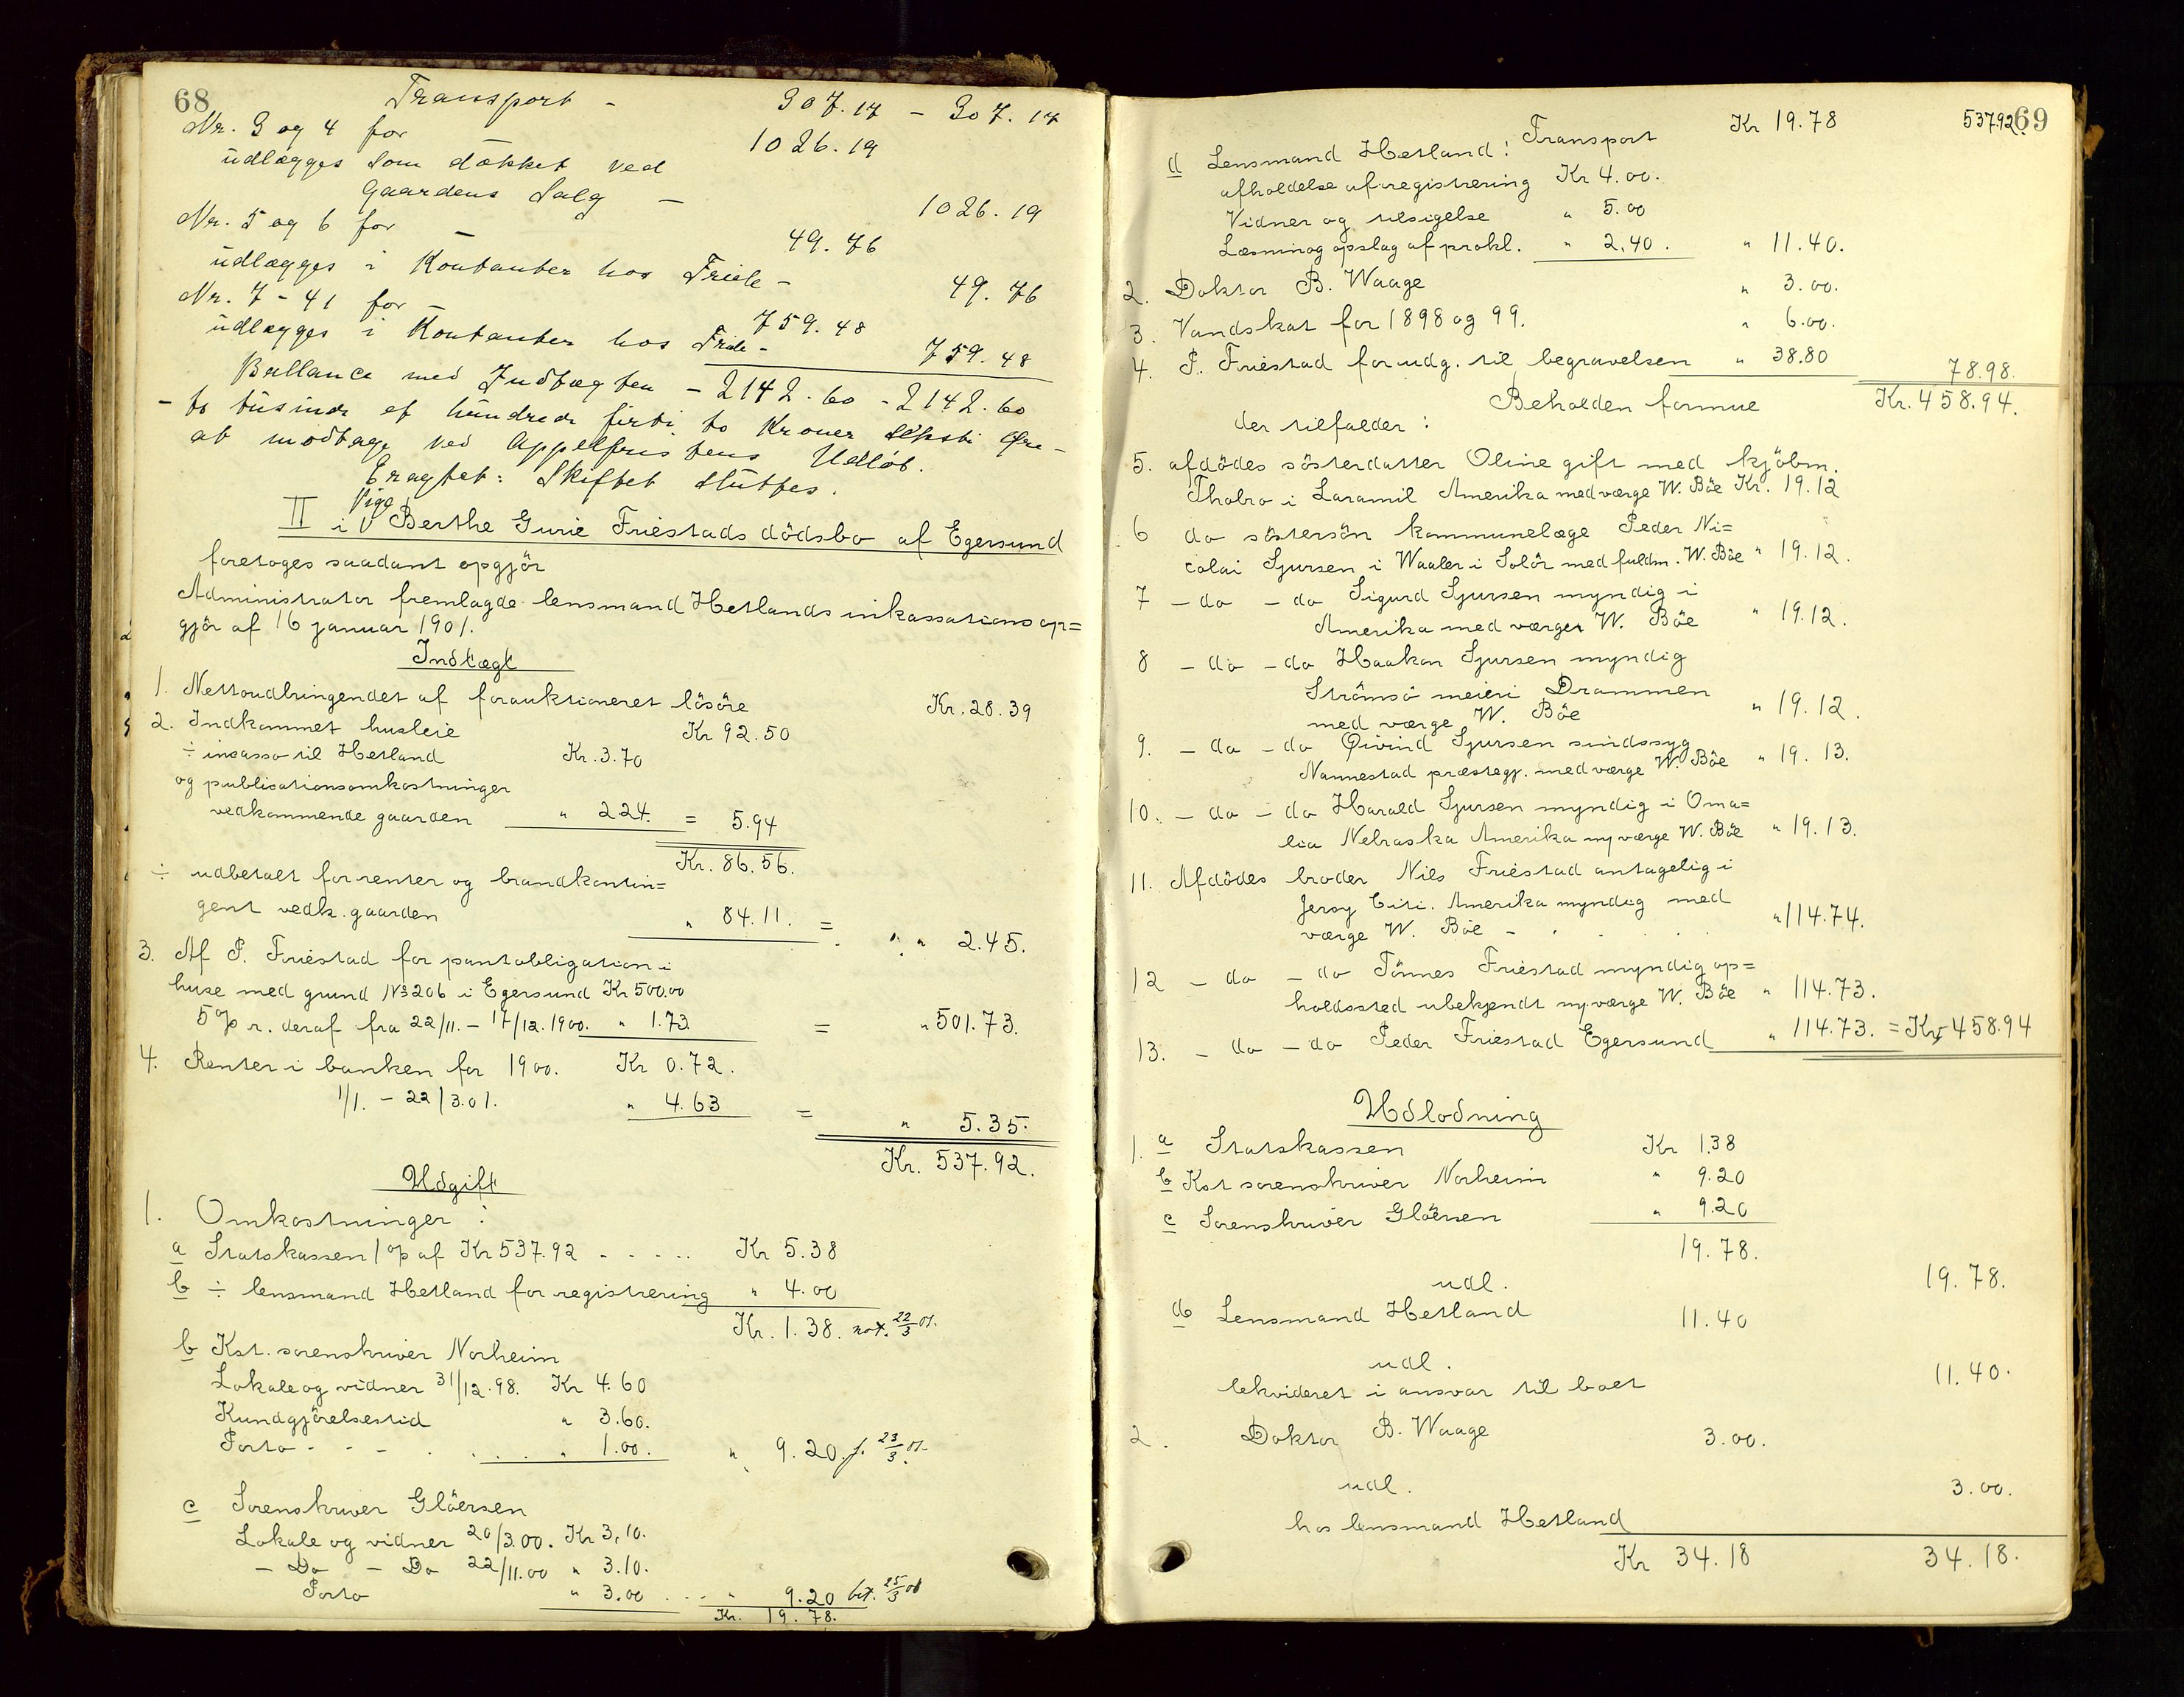 68
Transport - 307.17 - 307.17
Nr. 3 og 4 for 1026.19
udlægges som dækket ved
Gaardens Salg - 1026.19
Nr. 5 og 6 for - 49.76
udlægges i Kontanter hos Friele - 49.76
Nr. 7-41 for - 759.48
udlægges i Kontanter hos Friele - 759.48
Ballance med Indtægten - 2142.60 - 2142.60
- to tusinde et hundrede firti to Kroner seksti Øre -
at modtage ved Appelfristens Udløb.
Eragtet: Skiftet sluttes.
II i Pige Berthe Gurie Friestads dödsbo af Egersund
foretoges saadant opgjör
Administrator fremlagde lensmand Hetlands inkassationsop=
gjör af 16 januar 1901.
Indtægt
1. Nettoudbringendet af forauktioneret lösöre Kr. 28.39
2. Indkommet husleie Kr 92.50
÷ incasso til Hetland Kr. 3.70
og publicationsomkostninger
vedkommende gaarden " 2.24. = 5.94
Kr. 86.56.
÷ udbetalt for renter og brandkontin=
gent vedk. gaarden " 84.11. = " " 2.45.
3. Af P. Friestad for pantobligation i
huse med grund No 206 i Egersund Kr 500.00
5 % r. deraf fra 22/11. - 17/12. 1900. " 1.73. = " 501.73.
4. Renter i banken for 1900. Kr 0.72.
1/1. - 22/3.01. " 4.63 = " 5.35.
Kr. 537.92.
Udgift
1. Omkostninger:
a Statskassen 1 % af Kr 537.92 . . . . . Kr 5.38
b ÷ lensmand Hetland for registrering " 4.00
Kr. 1.38. not. 22/3 01.
b Kst. sorenskriver Norheim
Lokale og vidner 31/12.98. Kr 4.60
Kundgjörelsestid " 3.60.
Porto - - - . . . . " 1.00. " 9.20 f. 23/3 01.
c Sorenskriver Glöersen
Lokale og vidner 20/3.00. Kr 3.10.
- Do - Do 22/11.00 " 3.10.
Porto " 3.00 . . . " 9.20 bet. 25/3 01
Kr. 19.78.
69
Transport Kr 19.78 537.92.
d Lensmand Hetland:
afholdelse af registrering Kr 4.00.
Vidner og tilsigelse " 5.00
Læsning og opslag af prokl. " 2.40. " 11.40.
2. Doktor B. Waage " 3.00.
3. Vandskat for 1898 og 99. " 6.00.
4. P. Friestad for udg. til begravelsen " 38.80 78.98.
Beholden formue Kr. 458.94.
der tilfalder:
5. afdödes sösterdatter Oline gift med kjöbm.
Tholro i Laramil Amerika med værge W. Böe Kr. 19.12
6 do söstersön kommunelæge Peder Ni=
colai Sjursen i Waaler i Solör med fuldm. W. Böe " 19.12.
7 - do - do Sigurd Sjursen myndig i
Amerika med værge W. Böe " 19.12.
8 - do - do Haakon Sjursen myndig
Strömsö meieri Drammen
med værge W. Böe " 19.12.
9. - do - do Øivind Sjursen sindssyg
Nannestad præstegj. med værge W. Böe " 19.13.
10. - do - do Harald Sjursen myndig i Oma=
lia Nebraska Amerika m/værge W. Böe " 19.13.
11. Afdödes broder Niels Friestad antagelig i
Jersy Citi. Amerika myndig med
værge W. Böe - . . . . " 114.74.
12 - do - do Tönnes Friestad myndig op=
holdssted ubekjendt m/værge W. Böe " 114.73.
13. - do - do Peder Friestad Egersund " 114.73. = Kr. 458.94
Udlodning
1. a Statskassen Kr 1.38
b Kst sorenskriver Norheim " 9.20
c Sorenskriver Glöersen " 9.20
19.78.
udl. 19.78.
d Lensmand Hetland 11.40
udl. 11.40.
lekvideret i ansvar til boet
2. Doktor B. Waage 3.00.
udl. 3.00.
hos lensmand Hetland
Kr 34.18 34.18.